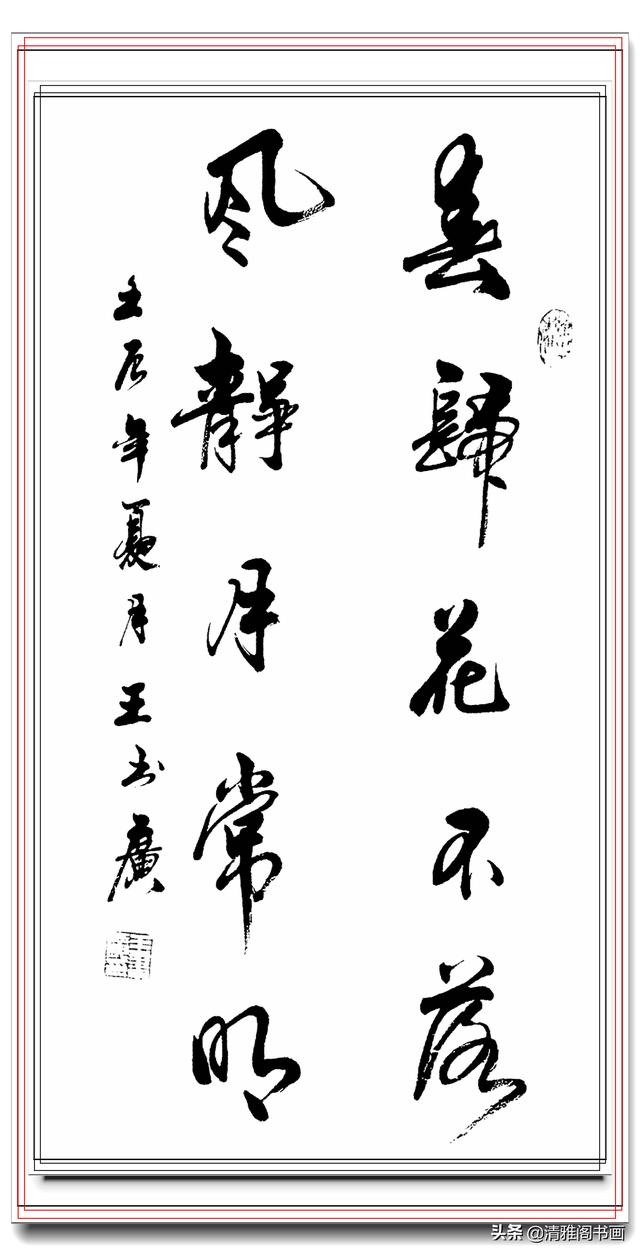 春歸花不落
风靜月常明
壬辰年夏月王书廣
头条 @清雅阁书画